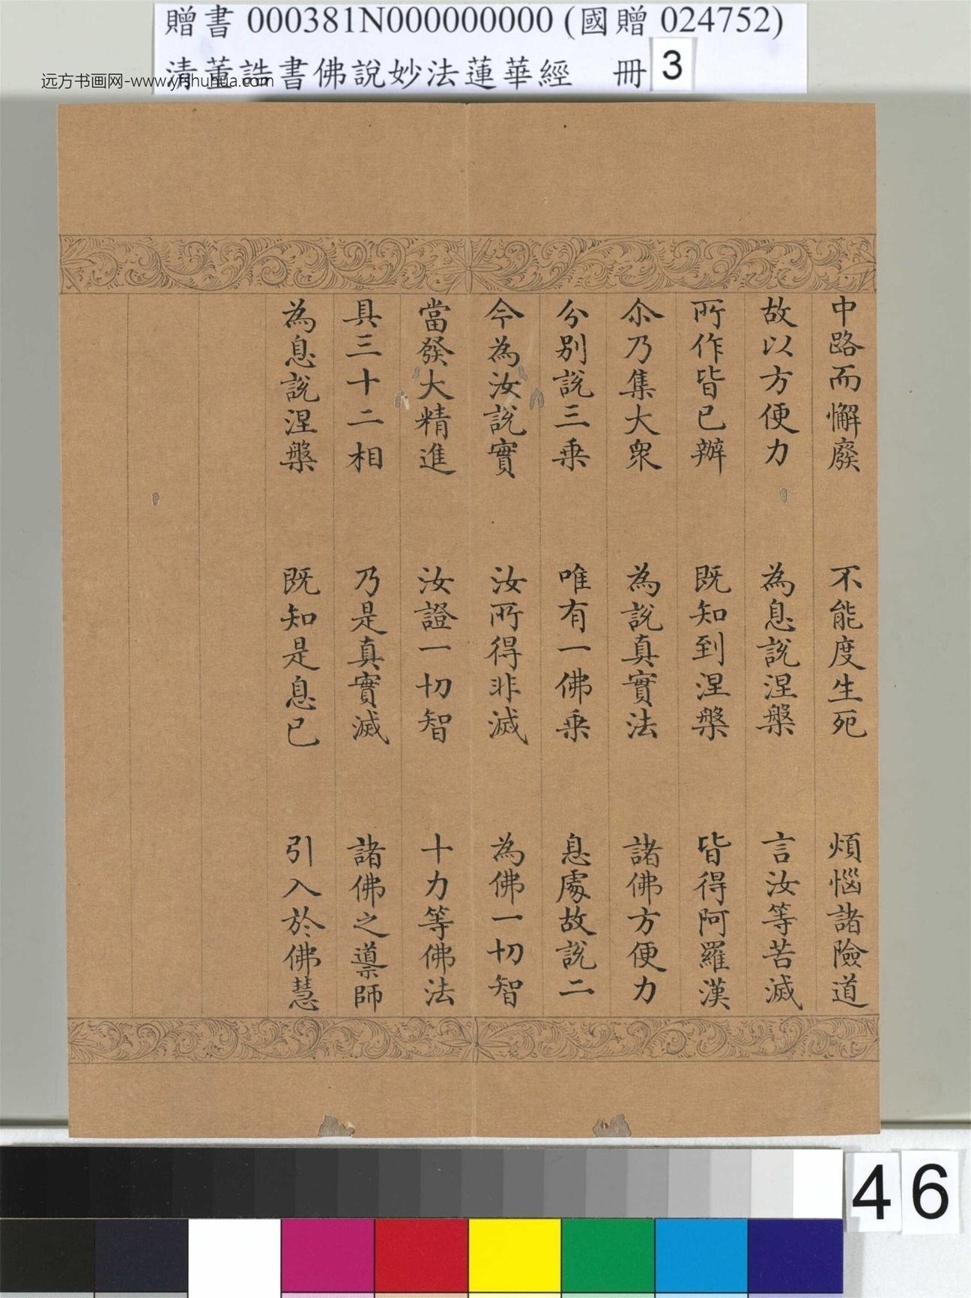 贈書 000381N000000000 (國贈 024752)
清董誥書佛說妙法蓮華經 冊 3
远方书画网-www.yfshuhua.com
中路而懈廢 不能度生死 煩惱諸險道
故以方便力 為息說涅槃 言汝等苦滅
所作皆已辦 既知到涅槃 皆得阿羅漢
尒乃集大眾 為說真實法 諸佛方便力
分別說三乘 唯有一佛乘 息處故說二
今為汝說實 汝所得非滅 為佛一切智
當發大精進 汝證一切智 十力等佛法
具三十二相 乃是真實滅 諸佛之導師
為息說涅槃 既知是息已 引入於佛慧
46